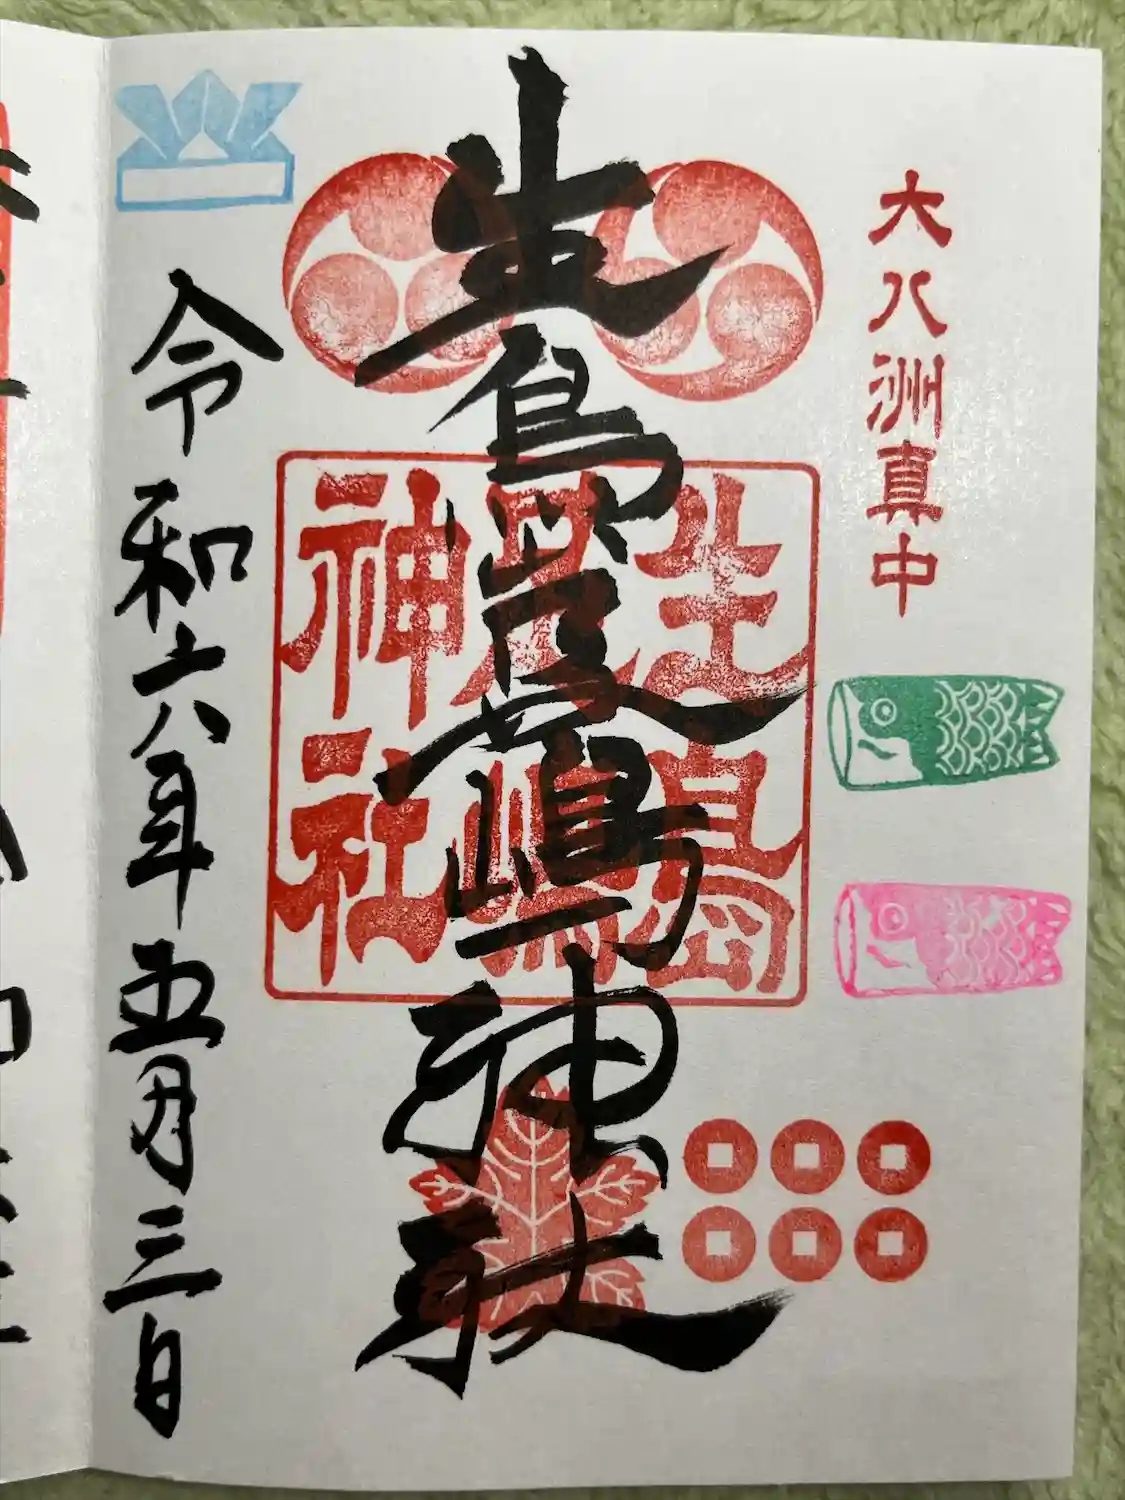 大八洲真中
生島足嶋神社
生島
足嶋
神社
令和六年五月三日